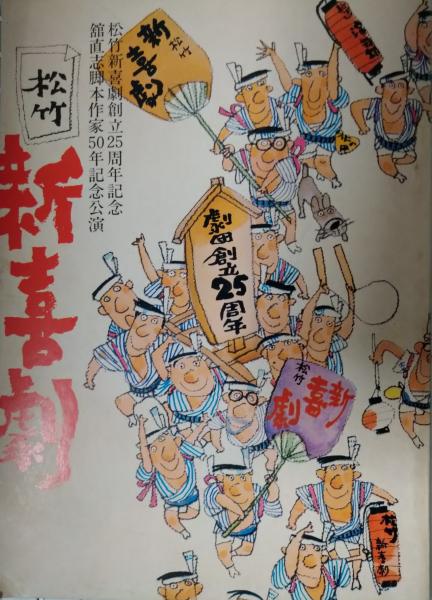 松竹新喜劇創立25周年記念
舘直志脚本作家50年記念公演
松竹
新喜劇
松竹
新喜劇
劇団創立25周年
松竹
新喜劇
松竹
新喜劇